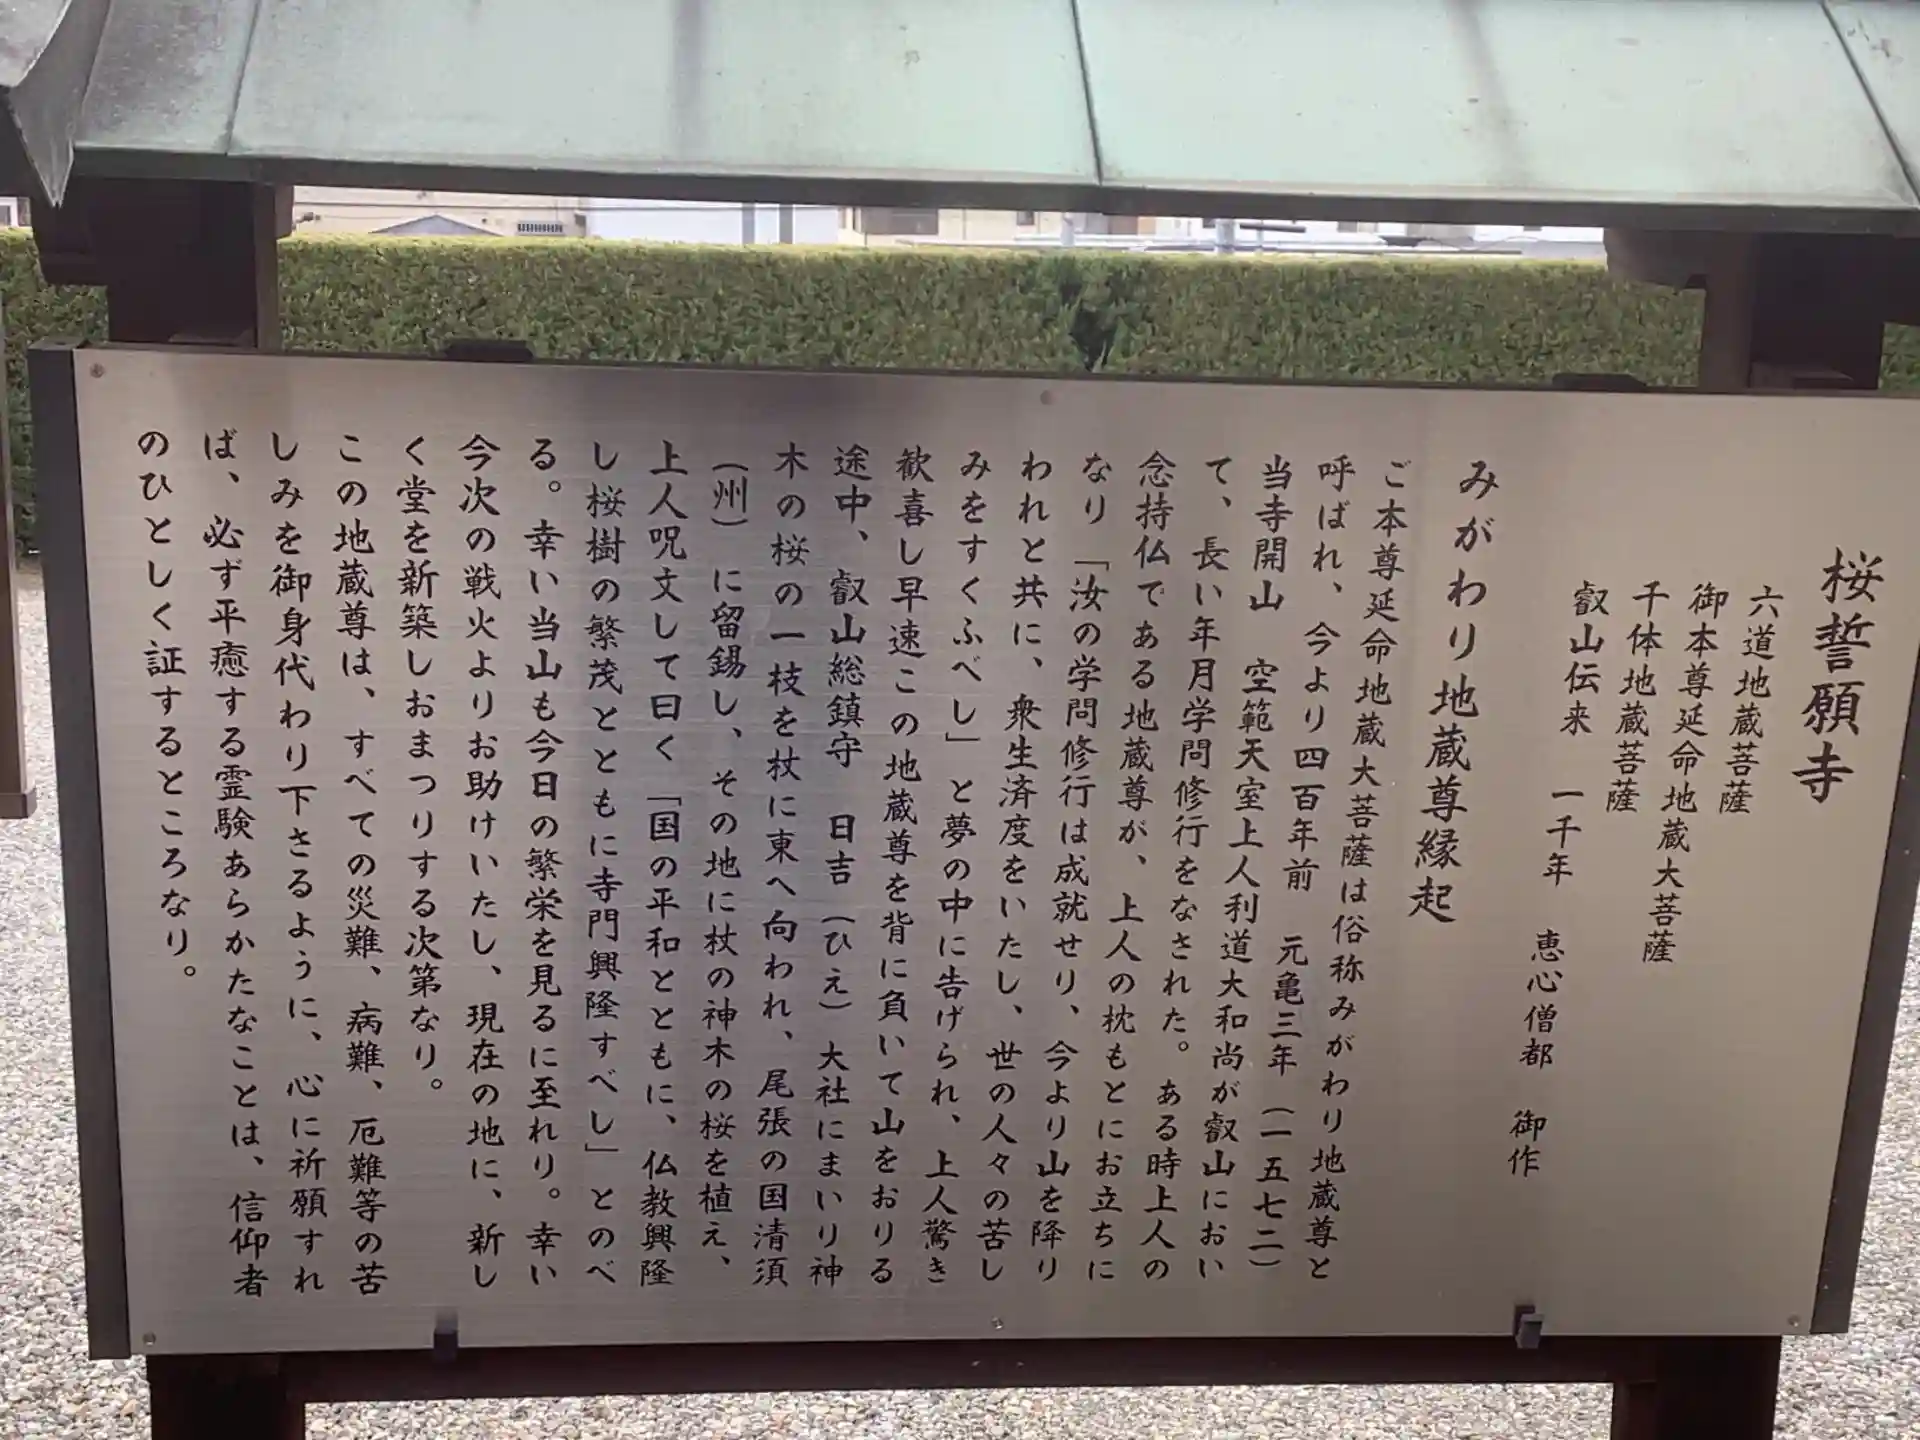 桜誓願寺
六道地蔵菩薩
御本尊延命地蔵大菩薩
千体地蔵菩薩
叡山伝来 一千年 恵心僧都 御作
みがわり地蔵尊縁起
ご本尊延命地蔵大菩薩は俗称みがわり地蔵尊と
呼ばれ、今より四百年前 元亀三年(一五七二)
当寺開山 空範天室上人利道大和尚が叡山におい
て、長い年月学問修行をなされた。ある時上人の
念持仏である地蔵尊が、上人の枕もとにお立ちに
なり「汝の学問修行は成就せり、今より山を降り
われと共に、衆生済度をいたし、世の人々の苦し
みをすくふべし」と夢の中に告げられ、上人驚き
歓喜し早速この地蔵尊を背に負いて山をおりる
途中、叡山総鎮守 日吉(ひえ)大社にまいり神
木の桜の一枝を杖に東へ向われ、尾張の国清須
(州)に留錫し、その地に杖の神木の桜を植え、
上人呪文して曰く「国の平和とともに、仏教興隆
し桜樹の繁茂とともに寺門興隆すべし」とのべ
る。幸い当山も今日の繁栄を見るに至れり。幸い
今次の戦火よりお助けいたし、現在の地に、新し
く堂を新築しおまつりする次第なり。
この地蔵尊は、すべての災難、病難、厄難等の苦
しみを御身代わり下さるように、心に祈願すれ
ば、必ず平癒する霊験あらかたなことは、信仰者
のひとしく証するところなり。